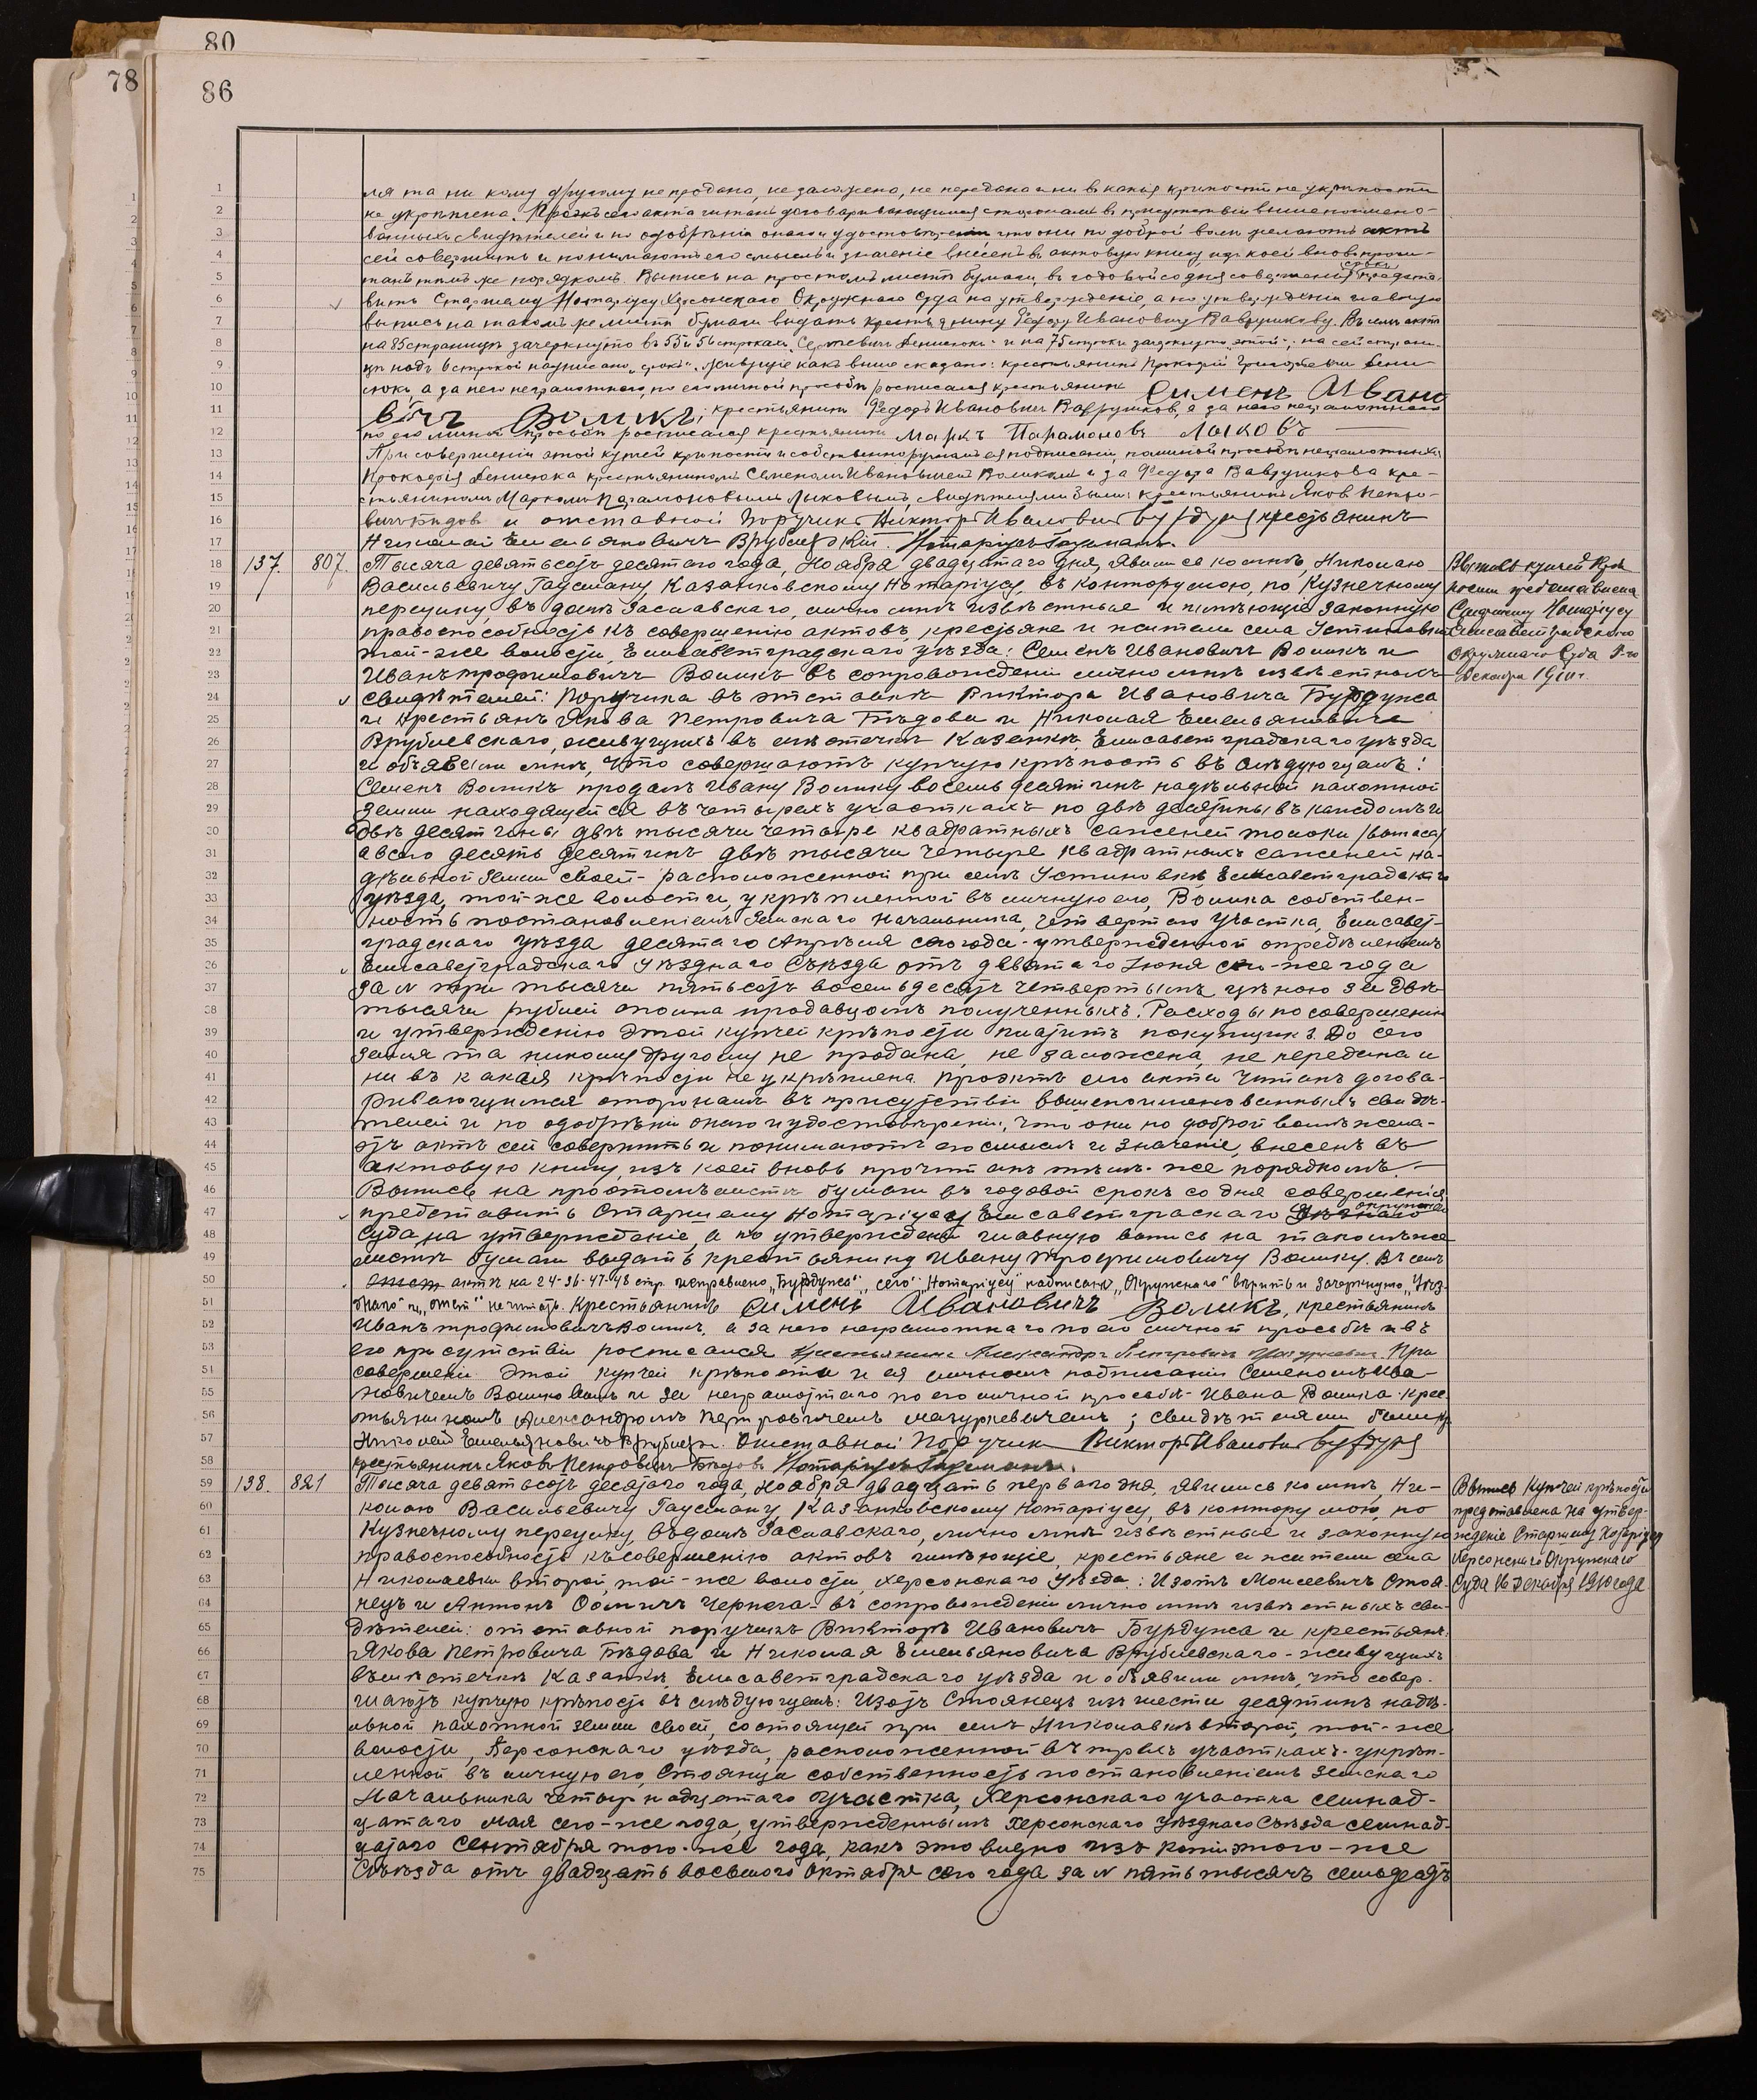 80
78
86
ля та ни кому другому не продана, не заложена, не передана и ни в какія крѣпости не укрѣпости
не укрѣплена. Проэктъ сего акта читанъ договаривающимся сторонамъ въ присутствіи вышепоимено-
ванныхъ свидѣтелей и по одобрѣніи онаго и удостовѣреніи что они по доброй волѣ желаютъ актъ
сей совершить и понимаютъ его смыслъ и значеніе внесенъ въ актовую книгу изъ коей вновь прочи-
танъ тѣмъ же порядкомъ. Выпись на простомъ листѣ бумаги въ годовой со дня совершенія срокъ предста-
вить Старшему Нотаріусу Херсонскаго Окружнаго Суда на утвержденіе, а по утвержденіи главную
выпись на такомъ же листѣ бумаги выдать крестьянину Федору Ивановичу Ваврушкову. Въ семъ актѣ
на 85 страницѣ зачеркнуто въ 55 и 56 строкахъ и на 75 строки зачеркнуто „этой“, на сей страни-
цѣ надъ 6 строкой надписано „срокъ“. Живущіе какъ выше сказано: крестьянинъ Прокофій Григорьевъ Дени-
сюкъ а за него неграмотнаго, по его личной просьбѣ росписался крестьянинъ Сименъ Ивано
вичъ Воликъ, крестьянинъ Федоръ Ивановичъ Ваврушковъ, а за него неграмотнаго
по его личной просьбѣ росписался крестьянинъ Маркъ Парамоновъ Лыковъ
При совершеніи этой купчей крѣпости и собственноручномъ ея подписаніи, по личной просьбѣ неграмотныхъ
Прокофія Денисюка крестьяниномъ Семеномъ Ивановичемъ Воликомъ и за Федора Ваврушкова кре-
стьяниномъ Маркомъ Парамоновымъ Лыковымъ, свидѣтелями были: крестьянинъ Яковъ Петро-
вичъ Бѣдовъ и отставной Поручикъ Викторъ Ивановичъ Бурдуца крестьянинъ
Николай Емельяновичъ Врублевскій. Нотаріусъ Гаусманъ.
137. 807. Тысяча девятьсотъ десятаго года, Ноября двадцатаго дня, явились ко мнѣ, Николаю
Васильевичу Гаусману, Казанковскому Нотаріусу, въ контору мою, по Кузнечному
переулку, въ домѣ Заславскаго, лично мнѣ извѣстные и имѣющіе законную
правоспособность къ совершенію актовъ, крестьяне и жители села Устиновки
той-же волости, Елисаветградскаго уѣзда: Семенъ Ивановичъ Воликъ и
Иванъ Трофимовичъ Воликъ въ сопровожденіи лично мнѣ извѣстныхъ
свидѣтелей: Поручика въ отставкѣ Виктора Ивановича Бурдуца
и крестьянъ Якова Петровича Бѣдова и Николая Емельяновича
Врублевскаго, живущихъ въ мѣстечкѣ Казанкѣ, Елисаветградскаго уѣзда
и объявили мнѣ, что совершаютъ купчую крѣпость въ слѣдующемъ:
Семенъ Воликъ продалъ Ивану Волику восемь десятинъ надѣльной пахотной
земли находящейся въ четырехъ участкахъ по двѣ десятины въ каждомъ и
двѣ десятины двѣ тысячи четыре квадратныхъ саженей толоки /выпаса/
а всего десять десятинъ двѣ тысячи четыре квадратныхъ саженей на-
дѣльной земли своей-расположенной при селѣ Устиновкѣ, Елисаветградскаго
уѣзда, той-же волости, укрѣпленной въ личную его, Волика собствен-
ность постановленіемъ Земскаго Начальника, четвертаго участка, Елисавет-
градскаго уѣзда десятаго Апрѣля сего года-утвержденной опредѣленіемъ
Елисаветградскаго Уѣзднаго Съѣзда отъ девятаго Іюня сего-же года
за № три тысячи пятьсотъ восемьдесятъ четвертымъ цѣною за двѣ
тысячи рублей сполна продавцомъ полученныхъ. Расходы по совершенію
и утвержденію этой купчей крѣпости платитъ покупщикъ. До сего
земля та никому другому не продана, не заложена, не передана и
ни въ какія крѣпости не укрѣплена. Проэктъ сего акта читанъ догова-
ривающимся сторонамъ въ присутствіи вышепоименованныхъ свидѣ-
телей и по одобрѣніи онаго и удостовѣреніи, что они по доброй волѣ жела-
ютъ актъ сей совершить и понимаютъ его смыслъ и значеніе, внесенъ въ
актовую книгу, изъ коей вновь прочитанъ тѣмъ-же порядкомъ.
Выпись на простомъ листѣ бумаги въ годовой срокъ со дня совершенія
представить Старшему Нотаріусу Елисаветграскаго Уѣзднаго Окружнаго
Суда на утвержденіе, а по утвержденіи главную выпись на такомъ же
листѣ бумаги выдать крестьянину Ивану Трофимовичу Волику. Въ семъ
актѣ на 24-36-47-48 стр. исправлено „Бурдуца“ „сего“ „Нотаріусу“ надписано „Окружнаго“ вѣрить и зачеркнуто „Уѣз-
днаго“ и „ нечитать. Крестьянинъ Сименъ Ивановичъ Воликъ, крестьянинъ
Иванъ Трофимовичъ Воликъ, а за него неграмотнаго по его личной просьбѣ и въ
его присутствіи росписался Крестьянинъ Александръ Петровичъ Мазуркевичъ. При
совершеніи этой купчей крѣпости и ея личномъ подписаніи Семеномъ Ива-
новичемъ Воликовымъ и за неграмотнаго по его личной просьбѣ-Ивана Волика-Крес-
тьяниномъ Александромъ Петровичемъ Мазуркевичемъ; свидѣтелями были кр
Николай Емельяновичъ Врублевск. Отставной Поручик Викторъ Ивановичъ Бурдуца
крестьянинъ Яковъ Петровичъ Бѣдовъ Нотаріусъ Гаусманъ.
Выпись купчей крѣ
пости представлена
Старшему Нотаріусу
Елисаветградскаго
Окружнаго Суда 1-го
Декабря 1910 г.
138. 821 Тысяча девятьсотъ десятаго года, Ноября двадцать перваго дня, явились ко мнѣ, Ни-
колаю Васильевичу Гаусману, Казанковскому Нотаріусу, въ контору мою, по
Кузнечному переулку, въ домѣ Заславскаго, лично мнѣ извѣстные и законную
правоспособность къ совершенію актовъ имѣющіе, крестьяне и жители села
Николаевки второй, той-же волости, Херсонскаго Уѣзда: Изотъ Моисеевичъ Стоя-
нецъ и Антонъ Фомичъ Чернега-въ сопровожденіи лично мнѣ извѣстныхъ сви-
дѣтелей: отставной поручикъ Викторъ Ивановичъ Бурдуца и крестьянъ:
Якова Петровича Бѣдова и Николая Емельяновича Врублевскаго-живущихъ
въ мѣстечкѣ Казанкѣ, Елисаветградскаго уѣзда и объявили мнѣ, что совер-
шаютъ купчую крѣпость въ слѣдующемъ: Изотъ Стоянецъ изъ шести десятинъ надѣ-
льной пахотной земли своей, состоящей при селѣ Николавкѣ второй, той-же
волости, Херсонскаго уѣзда, расположенной въ трехъ участкахъ-укрѣп-
ленной въ личную его, Стоянца собственность постановленіемъ Земскаго
Начальника четырнадцатаго участка, Херсонскаго участка семнад-
цатаго мая сего-же года, утвержденнымъ Херсонскаго Уѣзднаго Съѣзда семнад-
цатаго Сентября того-же года, какъ это видно изъ копіи того-же
Съѣзда отъ двадцать восьмого Октября сего года за № пять тысячъ семьдесятъ
Выпись Купчей крѣпости
представлена на утвер-
жденіе Старшему Нотаріусу
Херсонскаго Окружнаго
Суда 16 Декабря 1910 года